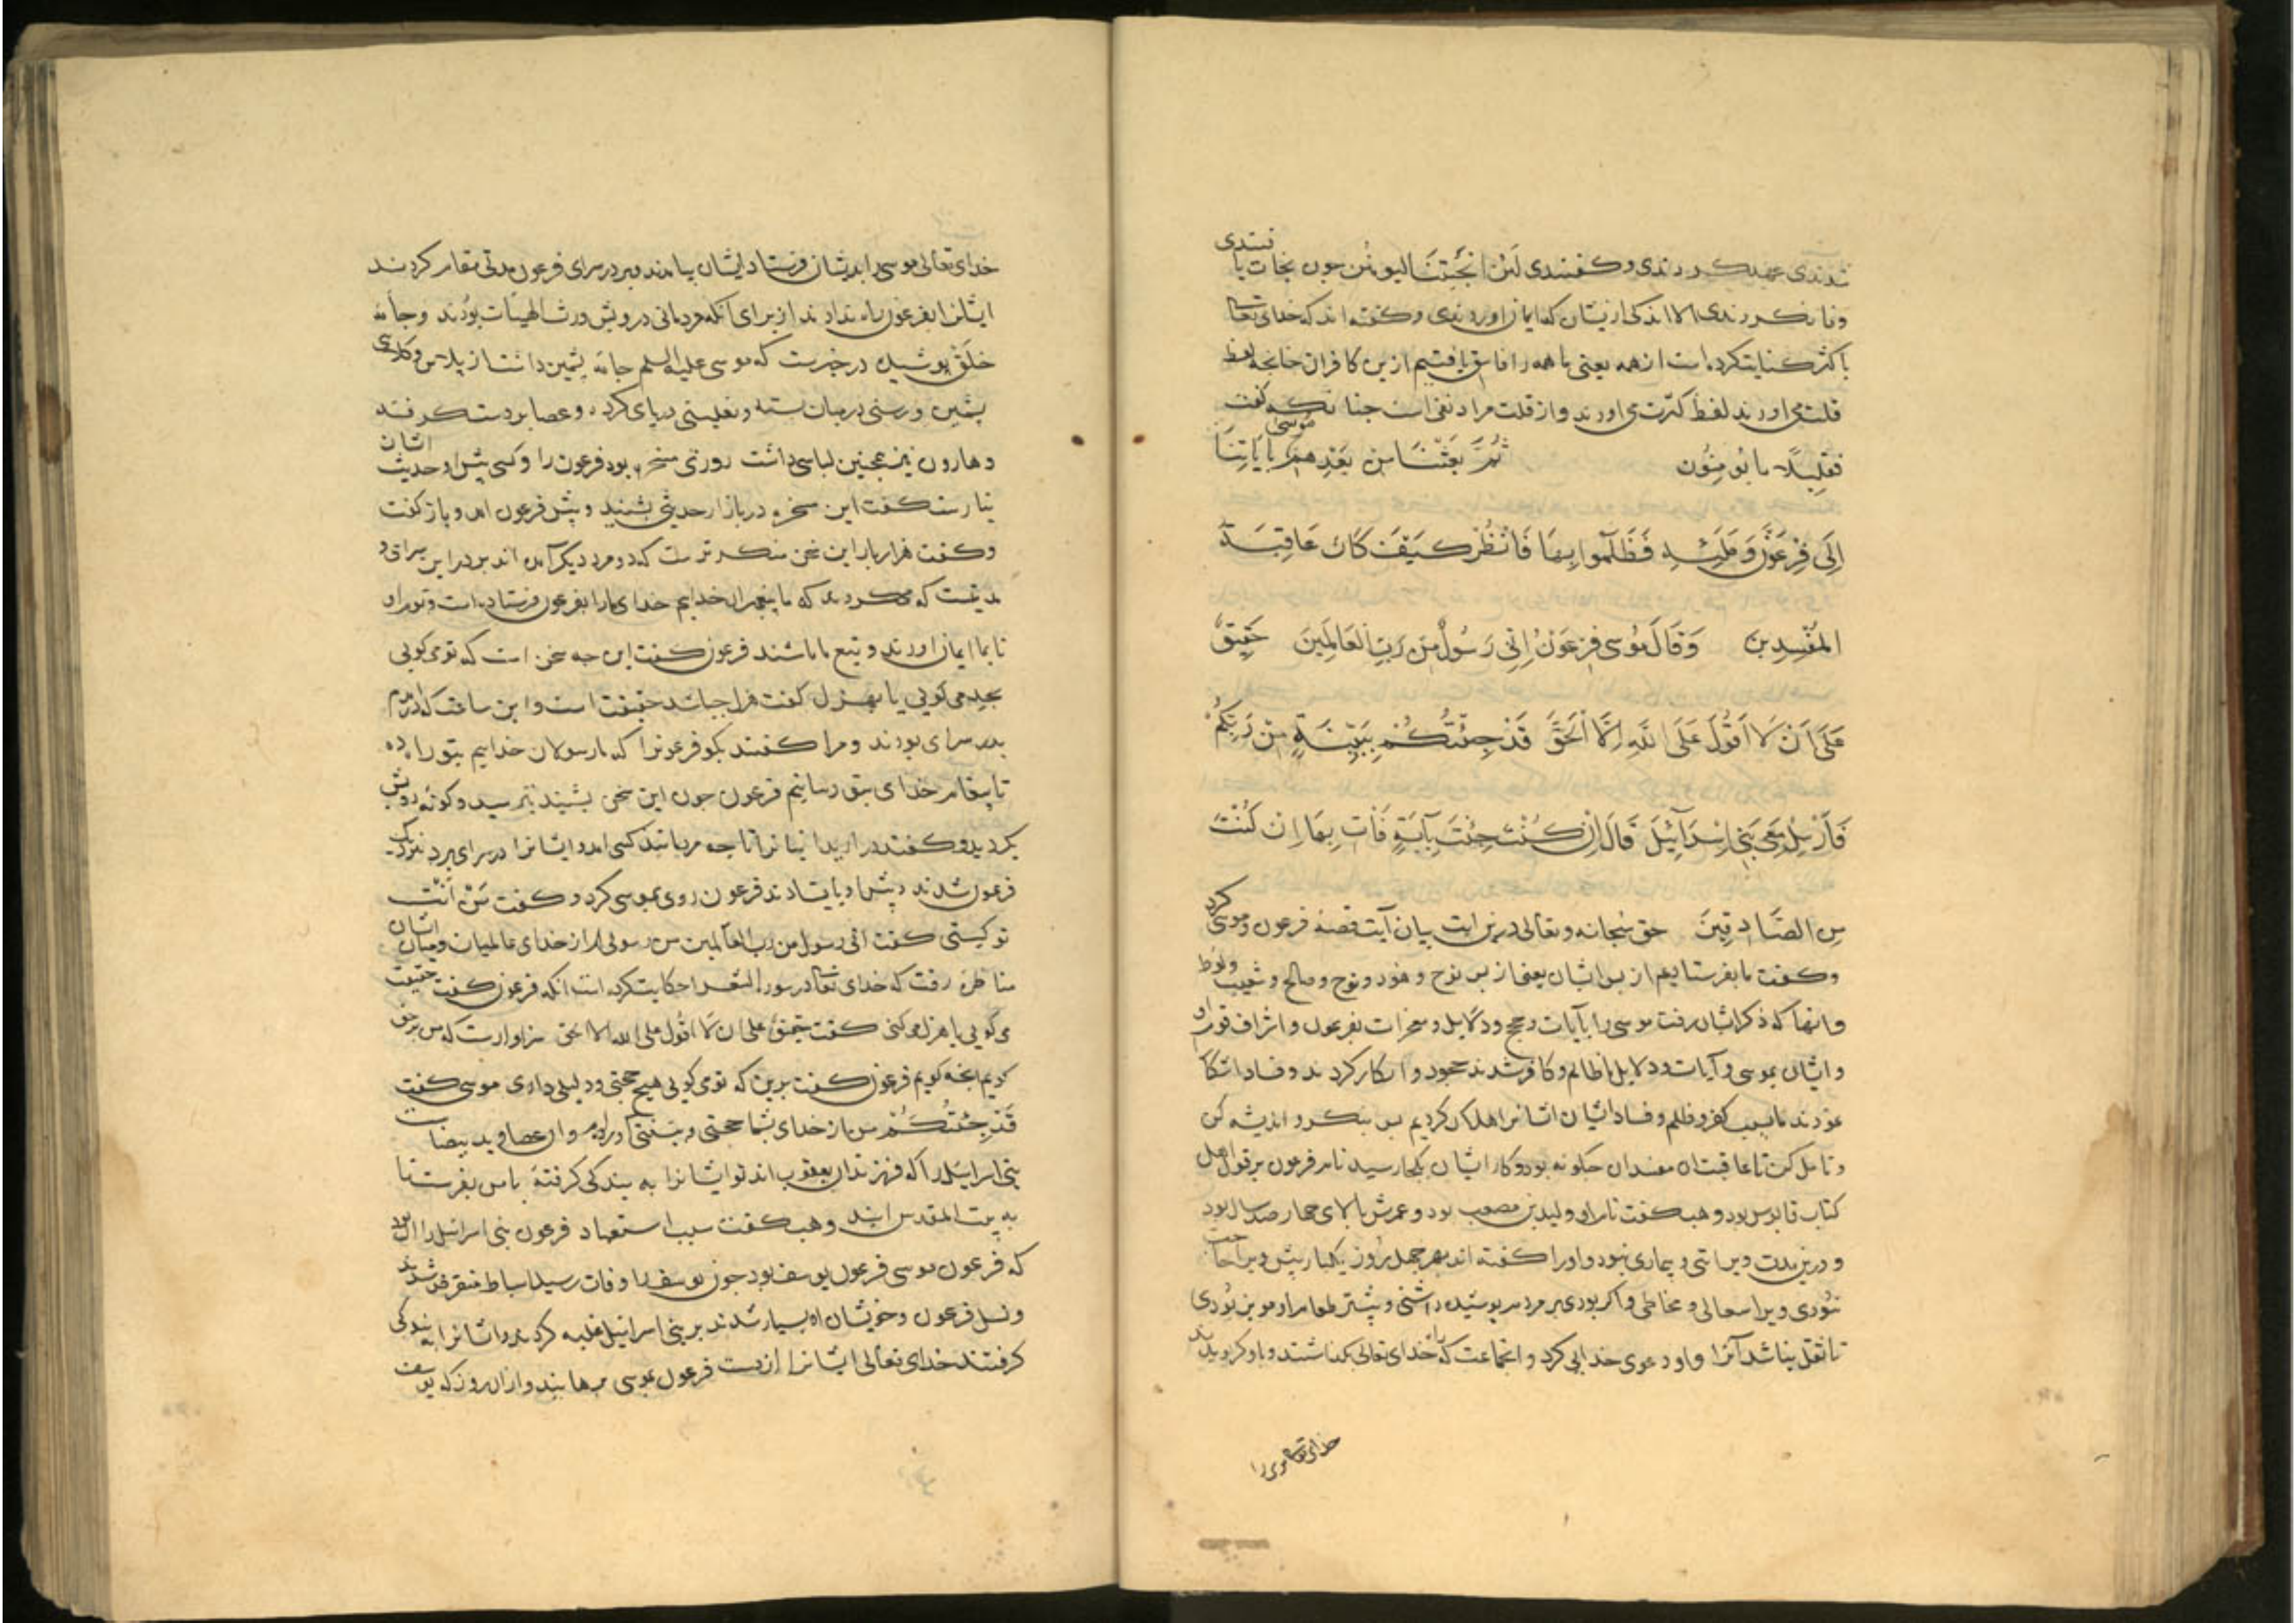 شدندی عهد کردندی و گفتندی لئن انجیتنا لیومنن چون نجات یافتندی
وفا نکردندی الا اندکی ازیشان که ایمان اوردندی و گفته اند که خدای تعالی
باکثر کنایت کرده است از همه یعنی ما همه را فاسق یافتیم ازین کافران جنانجه لفظ
قلت می اورند لفظ کثرت می اورند و از قلت مراد نفی است جنانکه گفت
فَقَلِیلًا مَا یُومِنُون ثُمَّ بَعَثْنَا مِن بَعْدِهِم مُوسی بِایَاتِنَا
اِلَی فِرْعَوْنَ وَمَلَئِهِ فَظَلَمُوا بِهَا فَانْظُرْ کَیْفَ کَانَ عَاقِبَةُ
المُفْسِدِین وَقَالَ مُوسی یا فِرْعَوْنُ اِنِّی رَسُولٌ مِن رَبِّ العَالَمِینَ حَقِیقٌ
عَلَی اَنْ لَا اَقُولَ عَلَی اللَّهِ اِلَّا الْحَقَّ قَدْ جِئْتُکُمْ بِبَیِّنَةٍ مِنْ رَبِّکُمْ
فَاَرْسِلْ مَعِیَ بَنِی اِسْرَآئِیلَ قَالَ اِنْ کُنْتَ جِئْتَ بِآیَةٍ فَأْتِ بِهَا اِنْ کُنْتَ
مِنَ الصَّادِقِینَ حق سبحانه و تعالی درین ایت بیان آیت قصهٔ فرعون و موسی کرد
و گفت ما بفرستادیم از پس ایشان یعنی از پس نوح و هود و صالح و شعیب و لوط
و انها که ذکر ایشان رفت موسی را بآیات و حجج و دلایل و معجزات بفرعون و اشراف قوم او
و ایشان بموسی و آیات و دلایل ما ظالم و کافر شدند جحود و انکار کردند و فساد اشکارا
نمودند ما بسبب کفر و ظلم و فساد ایشان ایشانرا هلاک کردیم پس بنگر و اندیشه کن
و تامل کن تا عاقبت ان مفسدان جگونه بود و کار ایشان بکجا رسید نام فرعون بر قول اهل
کتاب قابوس بود و وهب گفت نام او ولید بن مصعب بود و عمرش بالای جهار صد سال بود
و درین مدت ویرا تبی و بیماری نبود و اورا گفته اند بهر جهل روز یکبار بیش ویرا حاجت
نبودی ویرا سعالی و مخاطی و اگر بودی بر مردم پوشیده داشتی و بیشتر طعام او موز بودی
تا ثقل نباشد آنرا و او دعوی خدایی کرد و انجماعت که خدای تعالی را نشناختند و باو گرویدند
خدای تعالی موسی را
خدای تعالی موسی را بدیشان فرستاد ایشان بیامدند و بر در سرای فرعون مدتی مقام کردند
ایشانرا بفرعون راه ندادند از برای آنکه مردمانی درویش و رث الهیئات بودند و جامهٔ
خَلَق پوشیده در خبرست که موسی علیه السلم جامهٔ پشمین داشت از پلاس و کلاهی
پشمین و رسنی در میان بسته و نعلینی در پای کرده و عصا بر دست گرفته
و هارون نیز همجنین لباسی داشت روزی مسخرهٔ بود فرعون را و کسی پیش او حدیث ایشان
نیارست گفت این مسخره در بازار حدیثی بشنید و پیش فرعون امد و باز گفت
و گفت هزار بار این سخن منکرترست که دو مرد دیگر آمده اند بر در این سرای و
مدتیست که می گردند که ما پیغمبران خدایم خدای ما را بفرعون فرستاده است و قوم او
تا بما ایمان اورند و تبع ما باشند فرعون گفت این جه سخن است که تو می گویی
بجد می گویی یا بهزل گفت هزل جه باشد حقیقت است و این ساعت که درآمدم
بدر سرای بودند و مرا گفتند بگو فرعونرا که ما رسولان خداییم بتو راه ده
تا پیغام خدای بتو رسانیم فرعون جون این سخن بشنید بترسید و گونهٔ رویش
بگردید و گفت در ارید ایشانرا تا جه مردمانند کسی امد و ایشانرا در سرای برد نزدیک
فرعون شدند و پیش او بایستادند فرعون روی بموسی کرد و گفت مَنْ اَنْتَ
تو کیستی گفت انی رسول من رب العالمین من رسولی ام از خدای عالمیان و میان ایشان
مناظره رفت که خدای تعالی در سورة الشعرا حکایت کرده است انکه فرعون گفت حقیقت
می گویی یا هزل می کنی گفت حقیق علی ان لا اقول علی الله الا الحق سزاوارست که من بر حق
گویم انجه گویم فرعون گفت برین که تو می گویی هیج حجتی و دلیلی داری موسی گفت
قَدْ جِئْتُکُمْ من باز خدای بشما حجتی و بینتی آورده ام و ان عصا و ید بیضاست
بنی اسرائیل را که فرزندان یعقوب اند تو ایشانرا به بندگی گرفتهٔ با من بفرست تا
به بیت المقدس ایند وهب گفت سبب استعباد فرعون بنی اسرائیل را ان بود
که فرعون موسی فرعون یوسف بود جون یوسف را وفات رسید اسباط متفرق شدند
و نسل فرعون و خویشان او بسیار شدند بر بنی اسرائیل غلبه کردند و ایشانرا به بندگی
گرفتند خدای تعالی ایشانرا از دست فرعون بموسی برهانید و از ان روز که یوسف